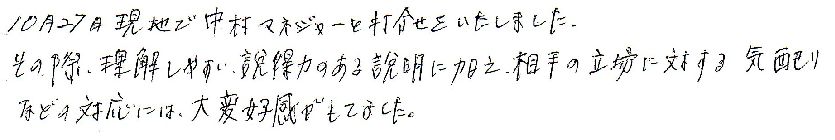 10月27日 現地で中村マネジャーと打合せをいたしました。
その際、理解しやすい、説得力のある説明に加え、相手の立場に対する 気配り
などの対応には、大変好感がもてました。